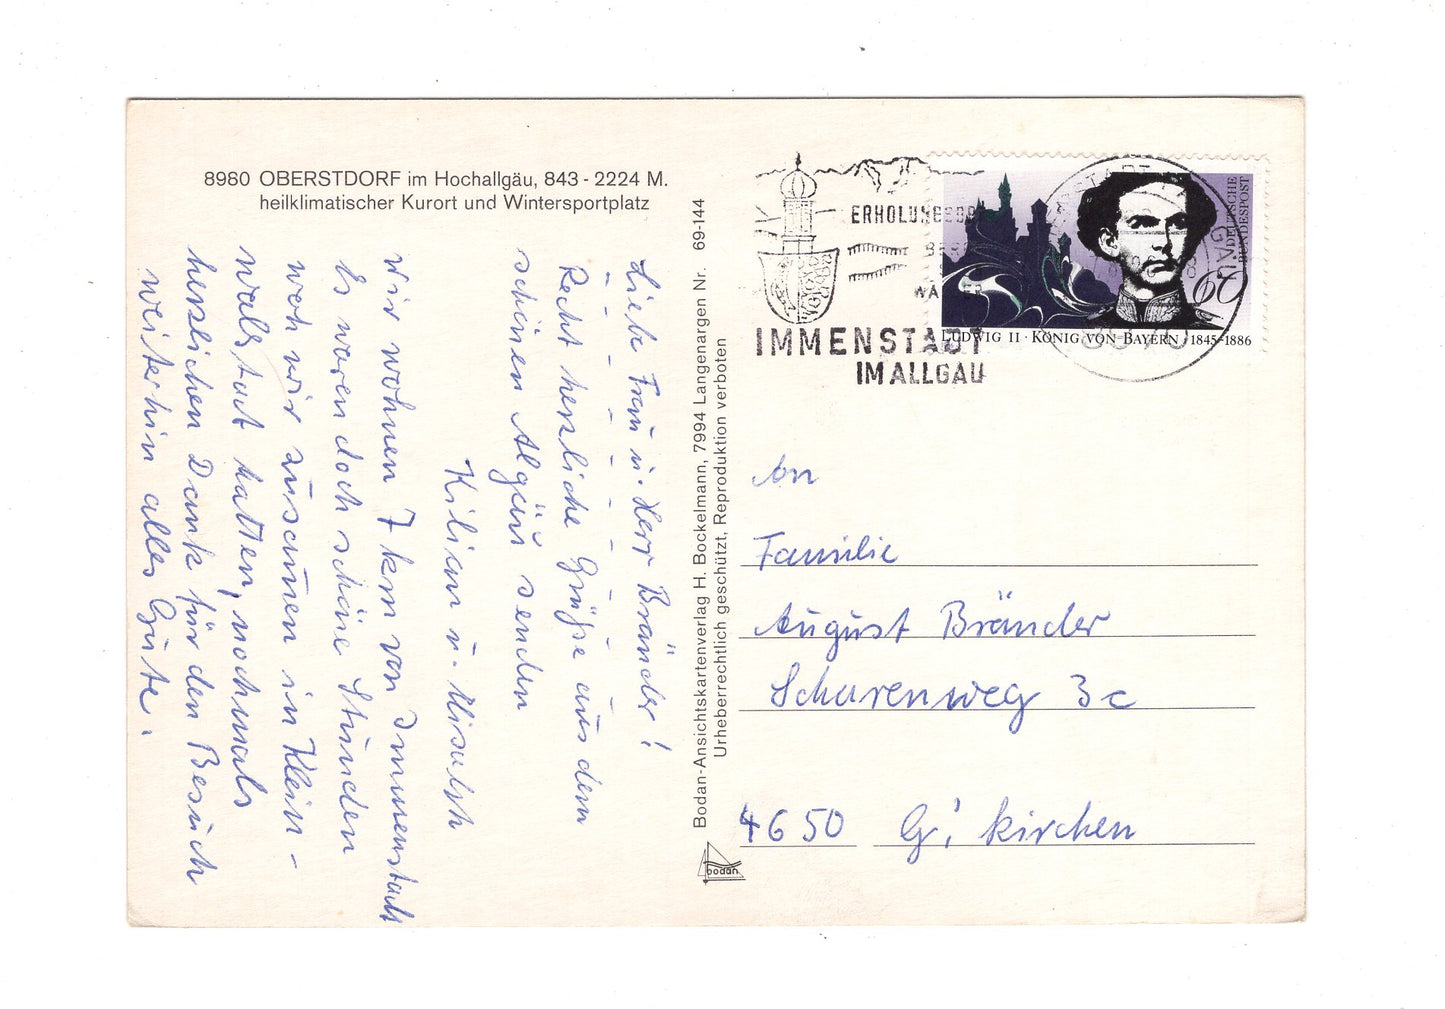 8980 OBERSTDORF im Hochallgäu, 843 - 2224 M.
heilklimatischer Kurort und Wintersportplatz
Liebe Frau u. Herr Bränder!
Recht herzliche Grüße aus dem
schönen Algäu senden
Kilian u.
Wir wohnen 7 km von Immenstadt
Es waren doch schöne Stunden
weh wir zusamen in Klein -
walstat hatten, nochmals
herzlichen Dank für den Besuch
weiterhin alles Gute.
Bodan-Ansichtskartenverlag H. Bockelmann, 7994 Langenargen Nr. 69-144
Urheberrechtlich geschützt, Reproduktion verboten
bodan
IMMENSTADT
IM ALLGÄU
DEUTSCHE
BUNDESPOST
60
LUDWIG II · KÖNIG VON BAYERN · 1845-1886
An
Familie
August Bränder
Schurenweg 3c
4650 G'kirchen